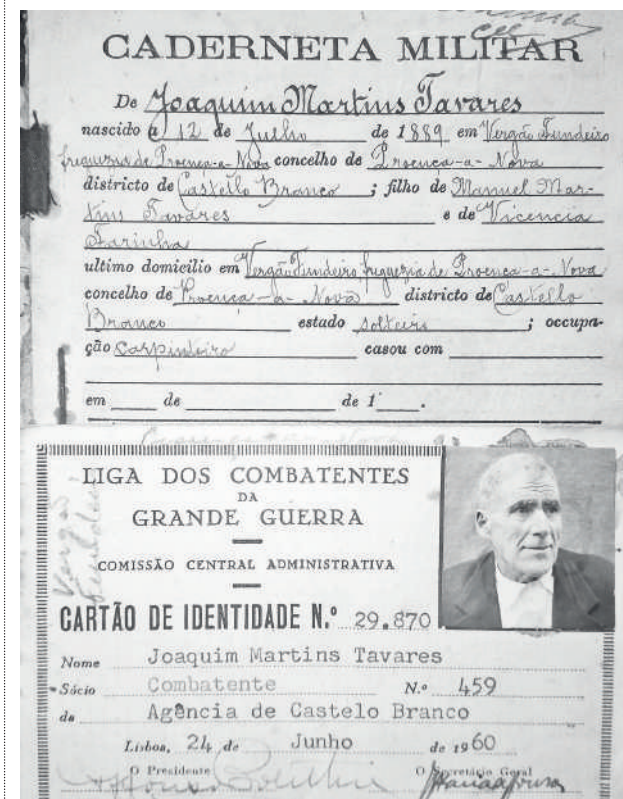 CADERNETA MILITAR
De Joaquim Martins Tavares
nascido a 12 de Julho de 1889 em Vergão Fundeiro
freguezia de Proença-a-Nova concelho de Proença-a-Nova
districto de Castello Branco ; filho de Manuel Mar-
tins Tavares e de Vicencia
Farinha
ultimo domicilio em Vergão Fundeiro freguezia de Proença-a-Nova
concelho de Proença-a-Nova districto de Castello
Branco estado solteiro ; occupa-
ção Carpinteiro casou com
em de de 1 .
LIGA DOS COMBATENTES
DA
GRANDE GUERRA
COMISSÃO CENTRAL ADMINISTRATIVA
CARTÃO DE IDENTIDADE N.º 29.870
Nome Joaquim Martins Tavares
Sócio Combatente N.º 459
da Agência de Castelo Branco
Lisboa, 24 de Junho de 1960
O Presidente O Secretário Geral